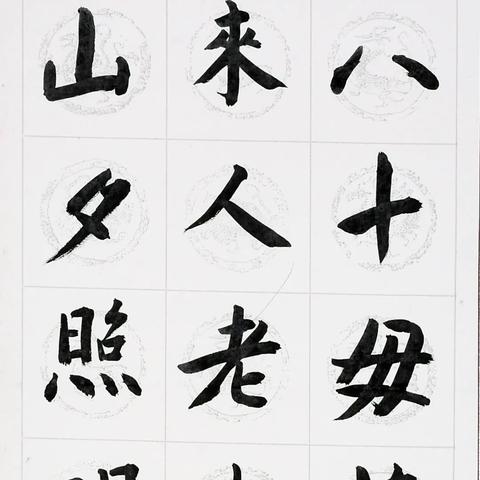 八十毋
來人老
山夕照